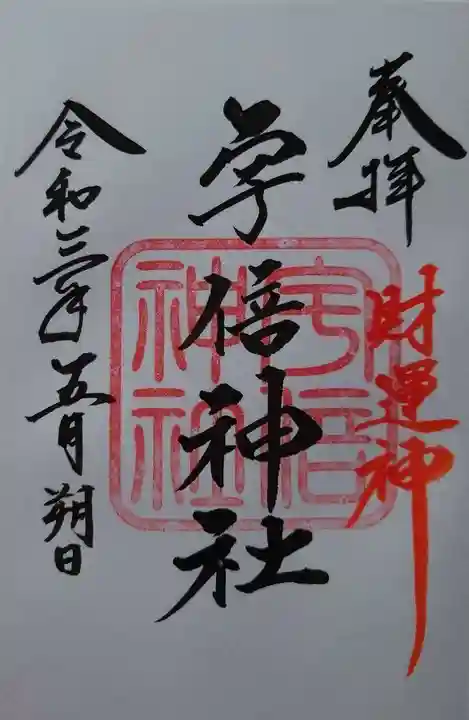 奉拝
財運神
宇倍神社
宇倍神社
令和三年五月朔日